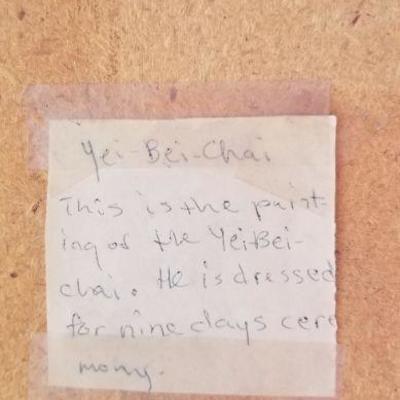 Yei-Bei-Chai
This is the paint-
ing of the YeiBei-
chai. He is dressed
for nine days cere
mony.